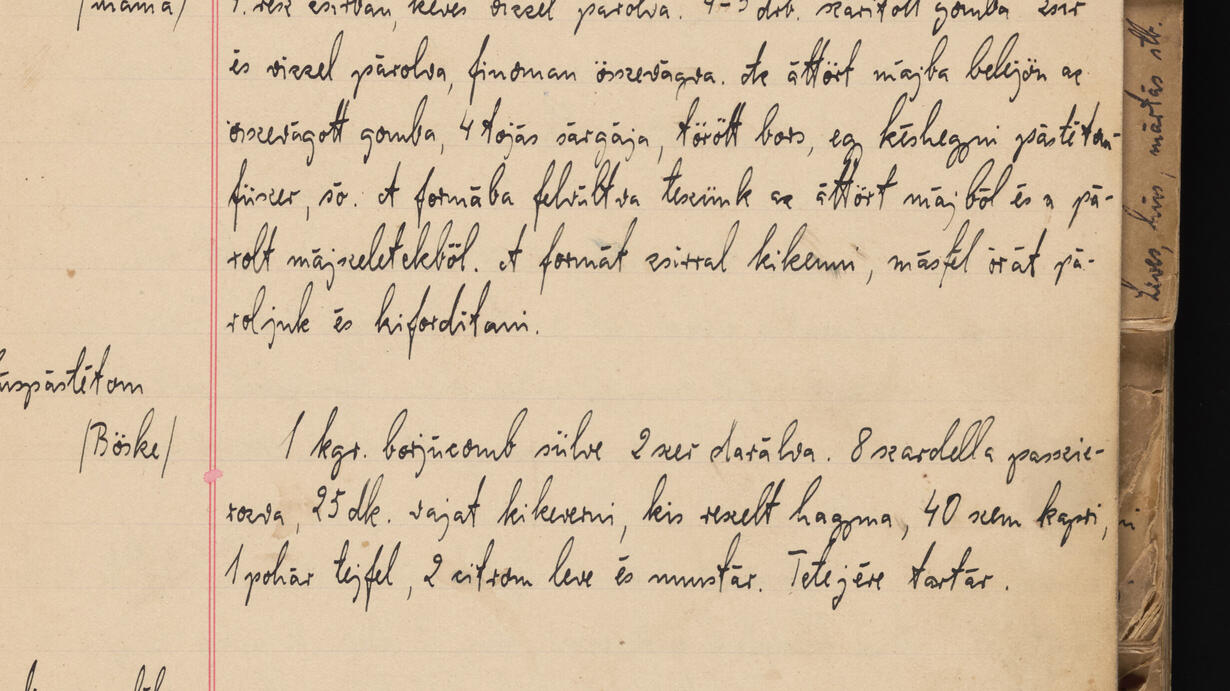 /mama/
1. rész zsirban, kevés vizzel párolva. 4-5 drb. szaritott gomba zsir
és vizzel párolva, finoman összevágva. Az áttört májba belejön az
összevágott gomba, 4 tojás sárgája, törött bors, egy késhegyni pástétom-
füszer, só. A formába felváltva teszünk az áttört májból és a pá-
rolt májszeletekböl. A formát zsirral kikenni, másfél órát pá-
roljuk és kiforditani.
uspástétom
/Böske/
1 kgr. borjúcomb sülve 2 szer darálva. 8 szardella passzie-
rozva, 25 dk. vajat kikeverni, kis reszelt hagyma, 40 szem kapri,
1 pohár tejfel, 2 citrom leve és mustár. Tetejére tartár.
Leves, hús, mártás stb.